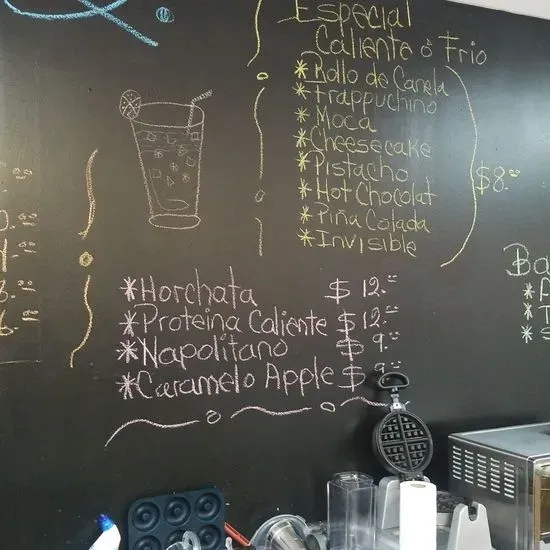 Especial
Caliente o Frio
*Rollo de Canela
*Frappuchino
*Moca
*Cheesecake
*Pistacho
*Hot Chocolat
*Piña Colada
*Invisible
$8.
*Horchata $ 12.
*Proteina Caliente $ 12.
*Napolitano $ 9.
*Caramelo Apple $ 9.
Ba